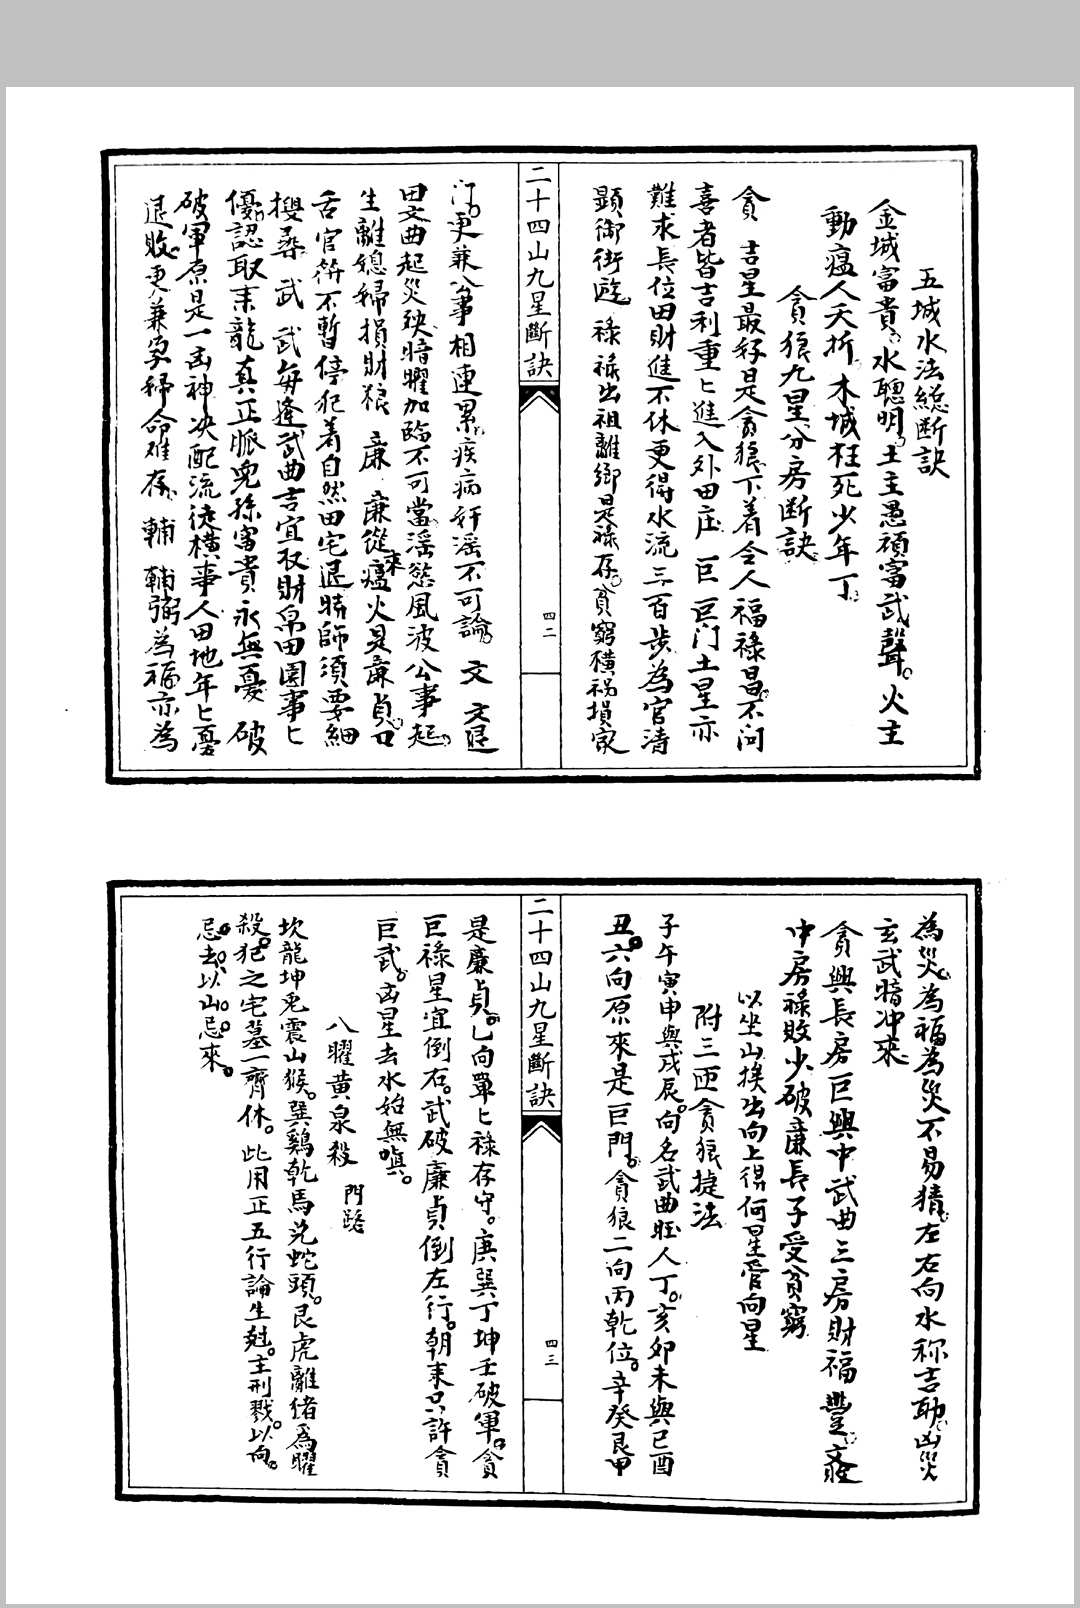 五城水法總断訣
金城富貴水聰明土主愚頑富武聲。火主
動瘟人夭折木城狂死少年丁
貪狼九星分房断訣
貪　吉星最好是貪狼下着令人福祿昌不问
喜者皆吉利重匕進入外田庄　巨　巨门土星亦
難求長位田財進不休更得水流三百步為官清
顕御街遊　祿　祿出祖離鄉是祿存貧窮横禍損家
二十四山九星斷訣
四二
更兼公事相連累疾病奸滛不可論　文　文退
田文曲起災殃暗曜加臨不可當滛慾風波公事起
生離媳婦損財粮　廉　廉從來瘟火是廉貞口
舌官符不暫停犯着自然田宅退時師須要細
搜尋　武　武每逢武曲吉宜取財帛田園事匕
優認取来龍真正脈兒孫富貴永無憂　破
破軍原是一凶神决配流徒横事人田地年匕憂
退敗更兼家婦命难存　輔　輔弼為福亦為
為災為福為災不易猜左右向水称吉助凶災
玄武暗冲来
貪興長房巨興中武曲三房財福豐文
中房祿敗少破廉長子受貧窮
以坐山挨出向上得何星管向星
附三匝貪狼捷法
子午寅申與戌辰。向名武曲旺人丁。亥卯未與巳酉
丑。六向原來是巨門。貪狼二向丙乾位。辛癸艮甲
二十四山九星斷訣
四三
是廉貞。乙向單匕祿存守。庚巽丁坤壬破軍。貪
巨祿星宜倒右。武破廉貞倒左行。朝来只許貪
巨武。凶星去水始無嗔。
八曜黄泉殺　門路
坎龍坤兎震山猴。巽鷄乾馬兌蛇頭。艮虎離猪為曜
殺。犯之宅墓一齊休。此用正五行論生尅。主刑戮。以向。
忌去。以山。忌來。